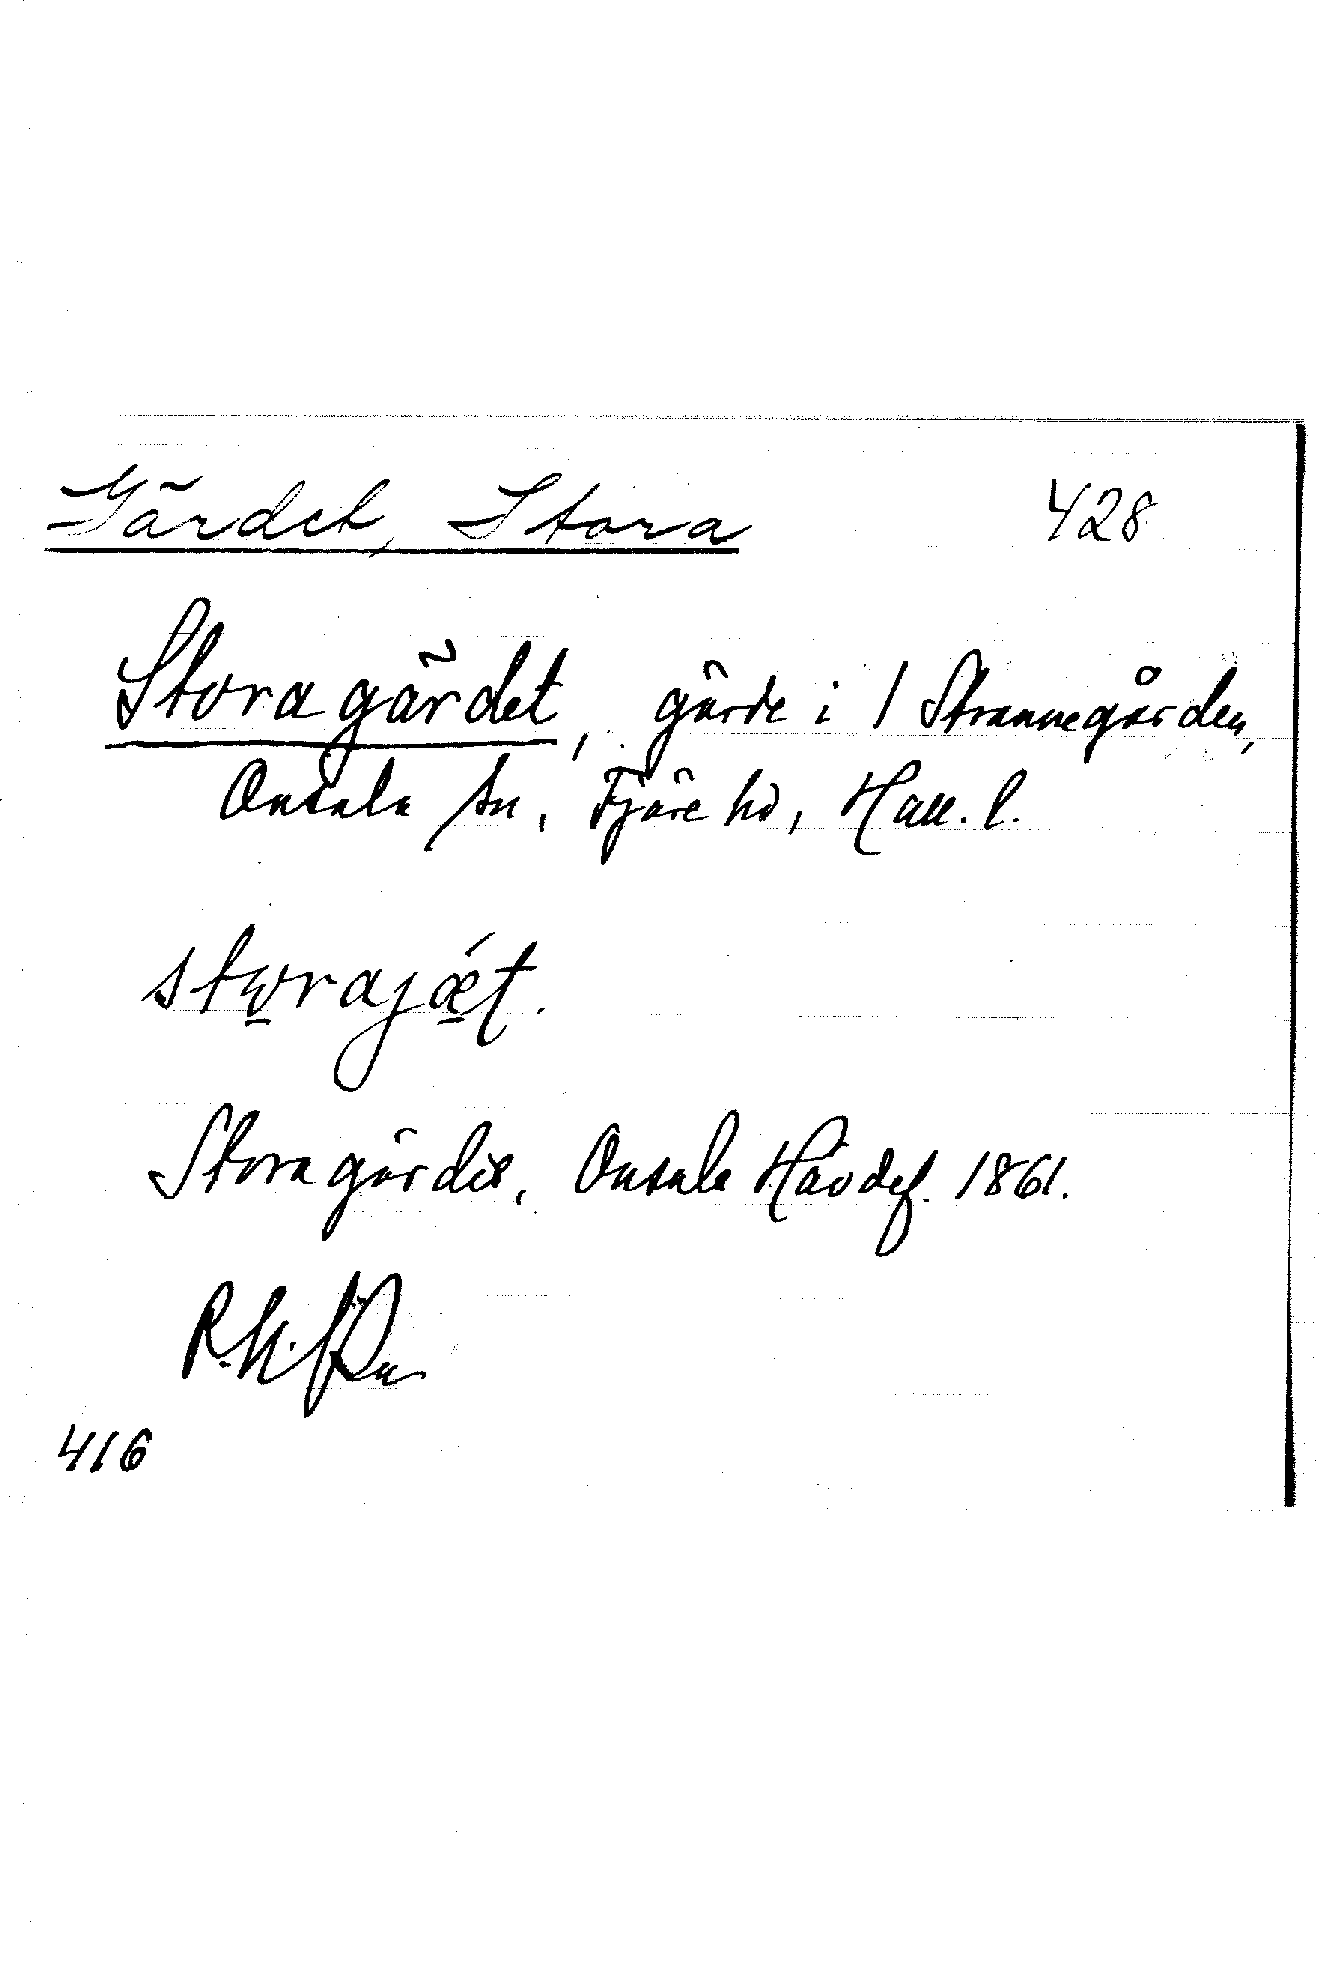 Gärdet, Stora 428
Storagärdet, gärde i 1 Strannegården,
Onsala sn, Fjäre hd, Hall. l.
storajǽt.
Storagärdet, Onsala Hävdef. 1861.
416